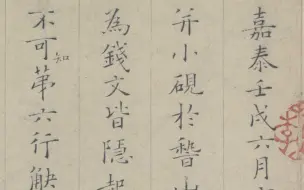 嘉泰壬戌六月
并小硯於
為錢文皆隱起
不可知第六行缺